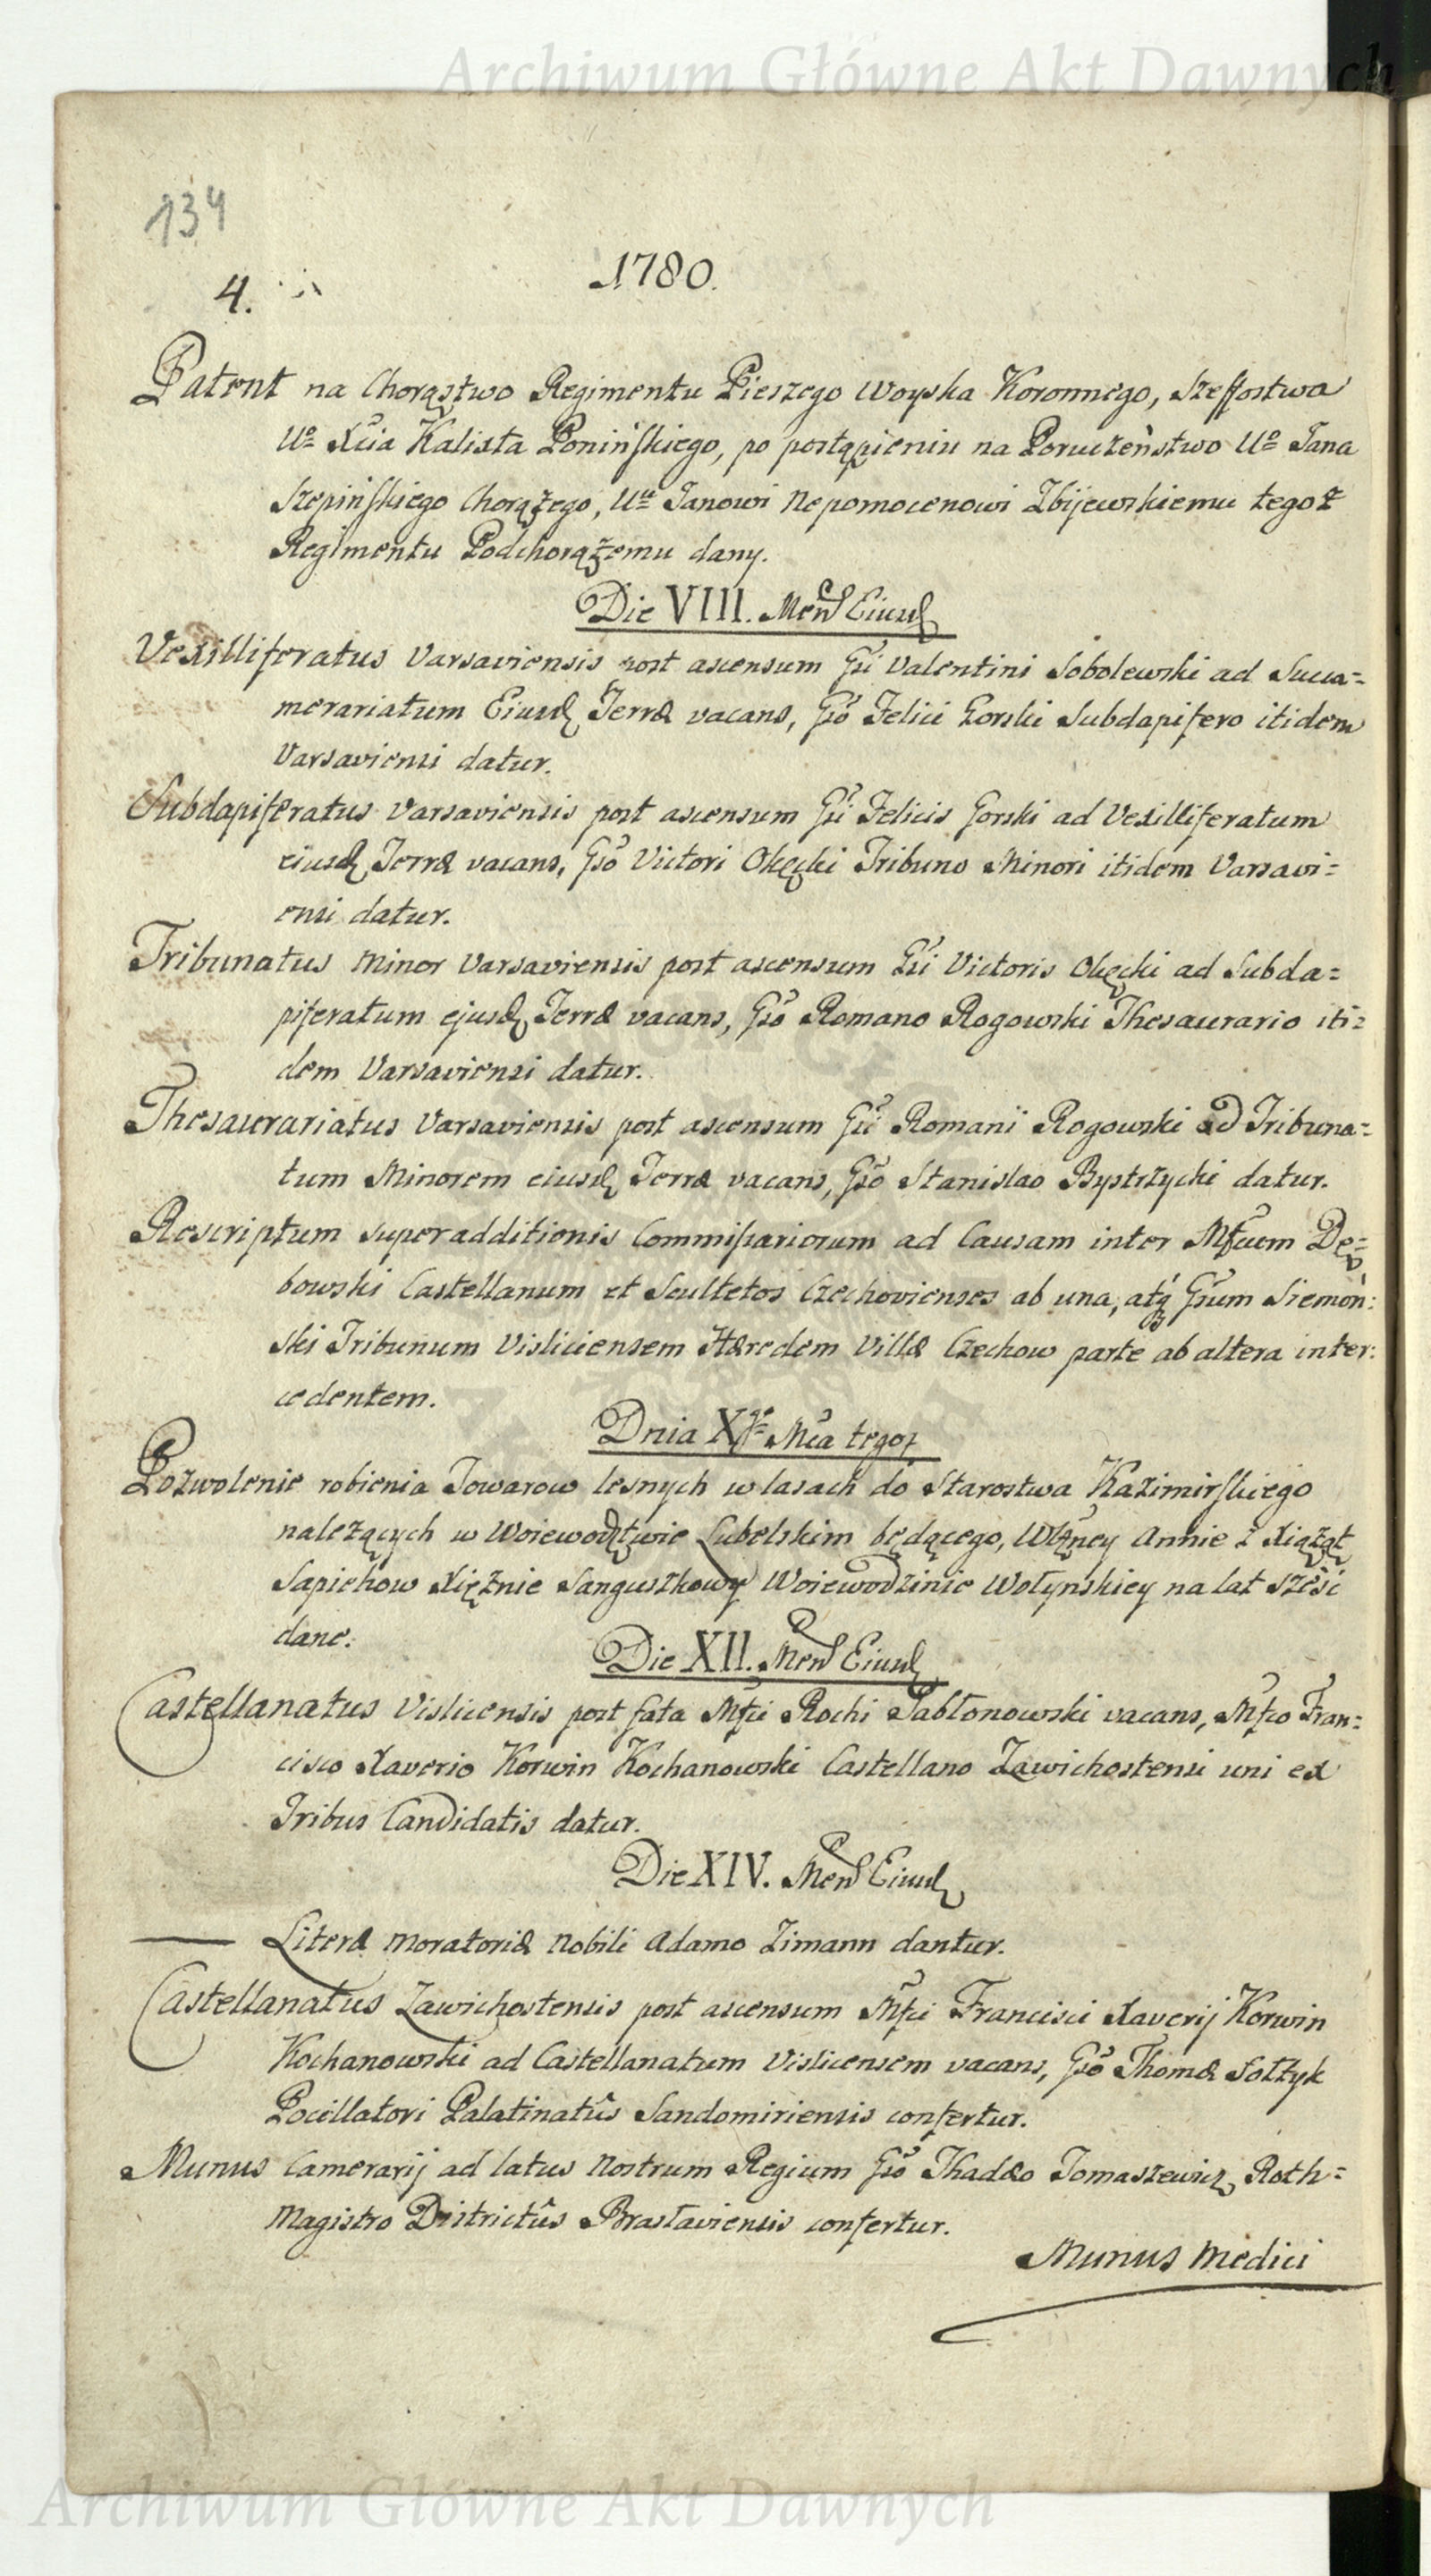 Archiwum Główne Akt Dawnych
134
1780.
4.
Patent na Chorąstwo Regimentu Pieszego Woyska Koronnego, Szeffostwa
Uo Xcia Kalixta Ponińskiego, po postąpieniu na Poruczeństwo Uo Jana
Szepińskiego Chorążego, Uu Janowi Nepomocenowi Zbijewskiemu tegoż
Regimentu Podchorążemu dany.
Die VIII. Mens Eiusd
Vexilliferatus Varsaviensis post ascensum Gsi Valentini Sobolewski ad Succa=
merariatum Eiusd Terræ vacans, Gso Felici Gorski Subdapifero itidem
Varsaviensi datur.
Subdapiferatus Varsaviensis post ascensum Gsi Felicis Gorski ad Vexilliferatum
eiusd Terræ vacans, Gso Victori Okęcki Tribuno Minori itidem Varsavi=
ensi datur.
Tribunatus Minor Varsaviensis post ascensum Gsi Victoris Okęcki ad Subda=
piferatum ejusd Terræ vacans, Gso Romano Rogowski Thesaurario iti=
dem Varsaviensi datur.
Thesaurariatus Varsaviensis post ascensum Gsi Romani Rogowski ad Tribuna=
tum Minorem eiusd Terræ vacans, Gso Stanislao Bystrzycki datur.
Rescriptum superadditionis Commissariorum ad Causam inter Mfcum Dę=
bowski Castellanum et Scultetos Czechovienses ab una, atq Gsum Siemoń:
ski Tribunum Visliciensem Hæredem Villæ Czechow parte ab altera inter:
cedentem.
Dnia Xgo Mca tegoż
Pozwolenie robienia Towarow lesnych w lasach do Starostwa Kazimirskiego
należących w Woiewodztwie Lubelskim będącego, Wżney Annie z Xiążąt
Sapiehow Xiężnie Sanguszkowy Woiewodzinie Wołynskiey na lat sześć
dane.
Die XII. Mens Eiusd
Castellanatus Vislicensis post fata Mfci Rochi Jabłonowski vacans, Mfco Fran=
cisco Xaverio Korwin Kochanowski Castellano Zawichostensi uni ex
Tribus Candidatis datur.
Die XIV. Mens Eiusd
Literæ Moratoriæ Nobili Adamo Zimann dantur.
Castellanatus Zawichostensis post ascensum Mfci Francisci Xaverij Korwin
Kochanowski ad Castellanatum Vislicensem vacans, Gso Thomæ Sołtyk
Pocillatori Palatinatûs Sandomiriensis confertur.
Munus Camerarij ad latus Nostrum Regium Gso Thadæo Tomaszewicz Roth=
Magistro Districtûs Brasłaviensis confertur.
Munus Medici
Archiwum Główne Akt Dawnych